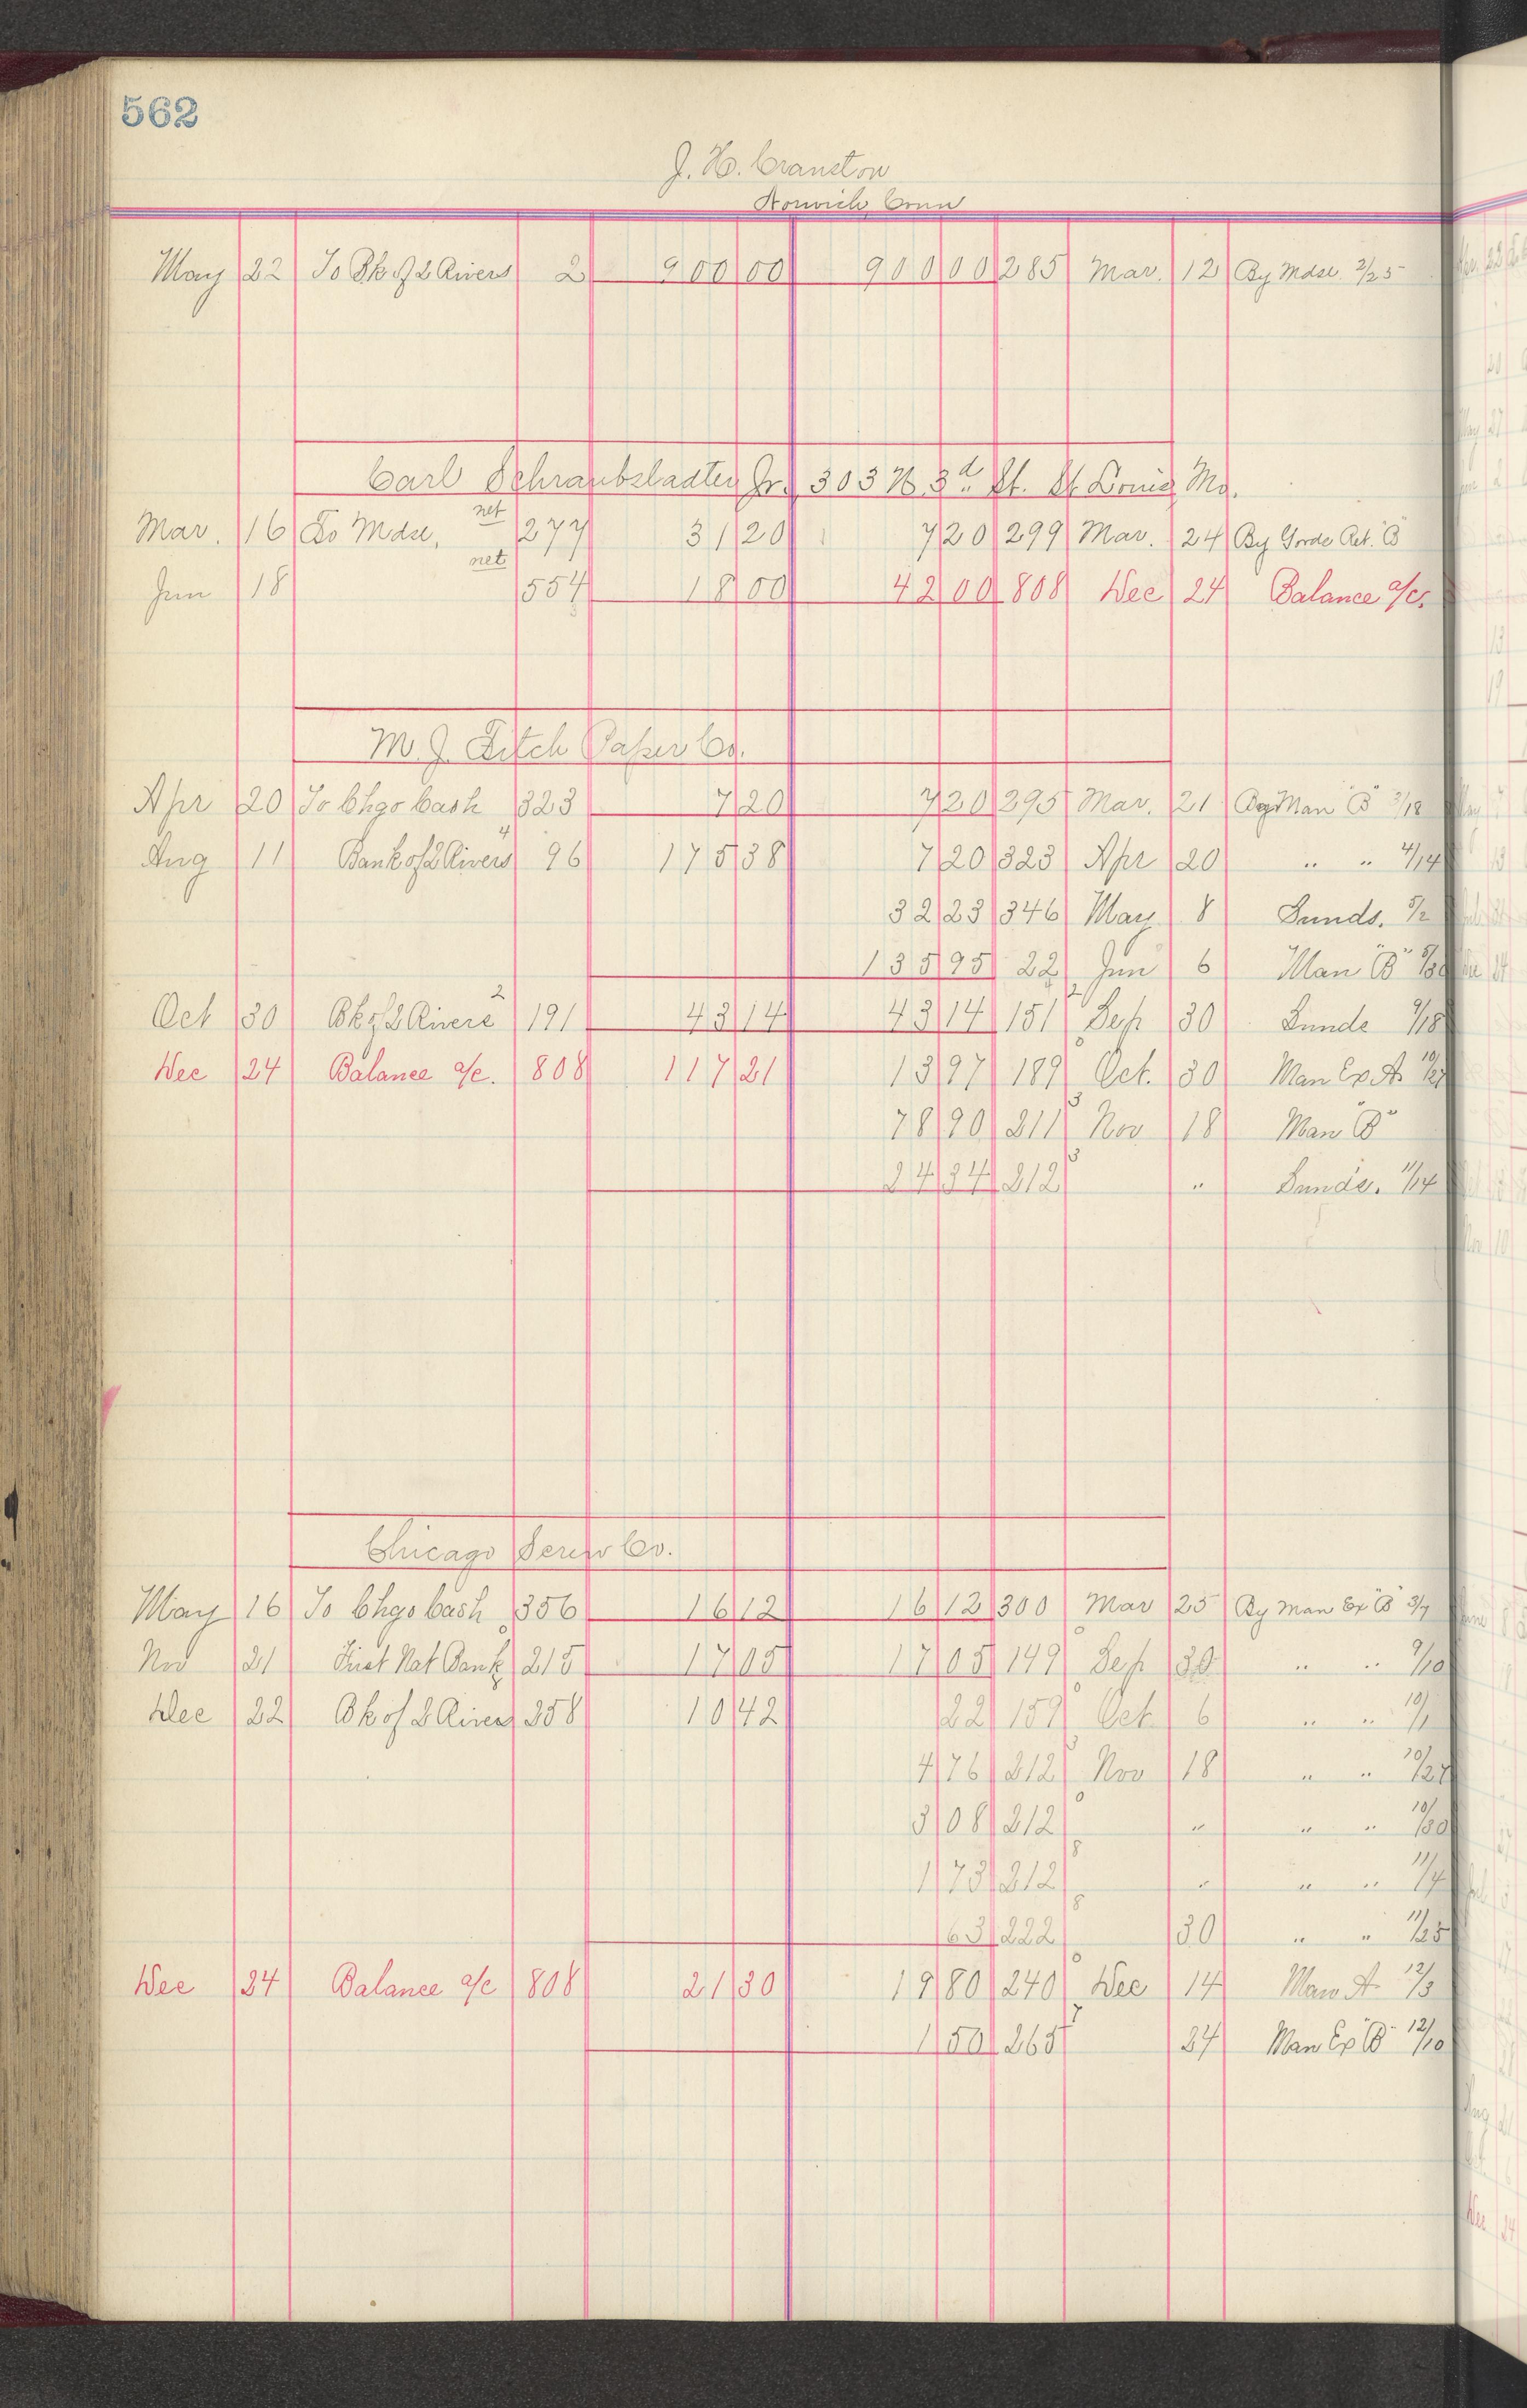 562
J. H. Cranston
Norwich, Conn
May 22 To Bk of 2 Rivers 2 900 00 900 00 285 Mar. 12 By Mdse. 2/25
Carl Schraubstadter Jr. 303 N. 3d St. St Louis, Mo.
Mar. 16 To Mdse, net 277 31 20 7 20 299 Mar. 24 By Goods Ret. "B"
Jun 18 net 554 18 00 42 00 808 Dec 24 Balance a/c.
M. J. Fitch Paper Co.
Apr 20 To Chgo Cash 323 7 20 7 20 295 Mar. 21 By Man "B" 3/18
Aug 11 Bank of 2 Rivers 4 96 175 38 7 20 323 Apr 20 " " 4/14
32 23 346 May 8 Sunds. 5/2
135 95 22 Jun 6 Man "B"
Oct 30 Bk of 2 Rivers 2 191 43 14 43 14 151 2 Sep 30 Sunds 9/18
Dec 24 Balance a/c. 808 117 21 13 97 189 0 Oct. 30 Man Ex A 10/27
78 90 211 3 Nov 18 Man "B"
24 34 212 3 " Sunds. 11/14
Chicago Screw Co.
May 16 To Chgo Cash 356 16 12 16 12 300 Mar 25 By Man Ex "B" 3/7
Nov 21 First Nat Bank 215 17 05 17 05 149 0 Sep 30 " " 9/10
Dec 22 Bk of 2 Rivers 258 10 42 22 159 0 Oct 6 " " 10/1
4 76 212 Nov 18 " " 10/27
3 08 212 0 " " " 10/30
1 73 212 8 " " " 11/7
63 222 8 30 " " 11/25
Dec 24 Balance a/c 808 21 30 19 80 240 0 Dec 14 Man A 12/3
1 50 265 7 24 Man Ex "B" 12/10